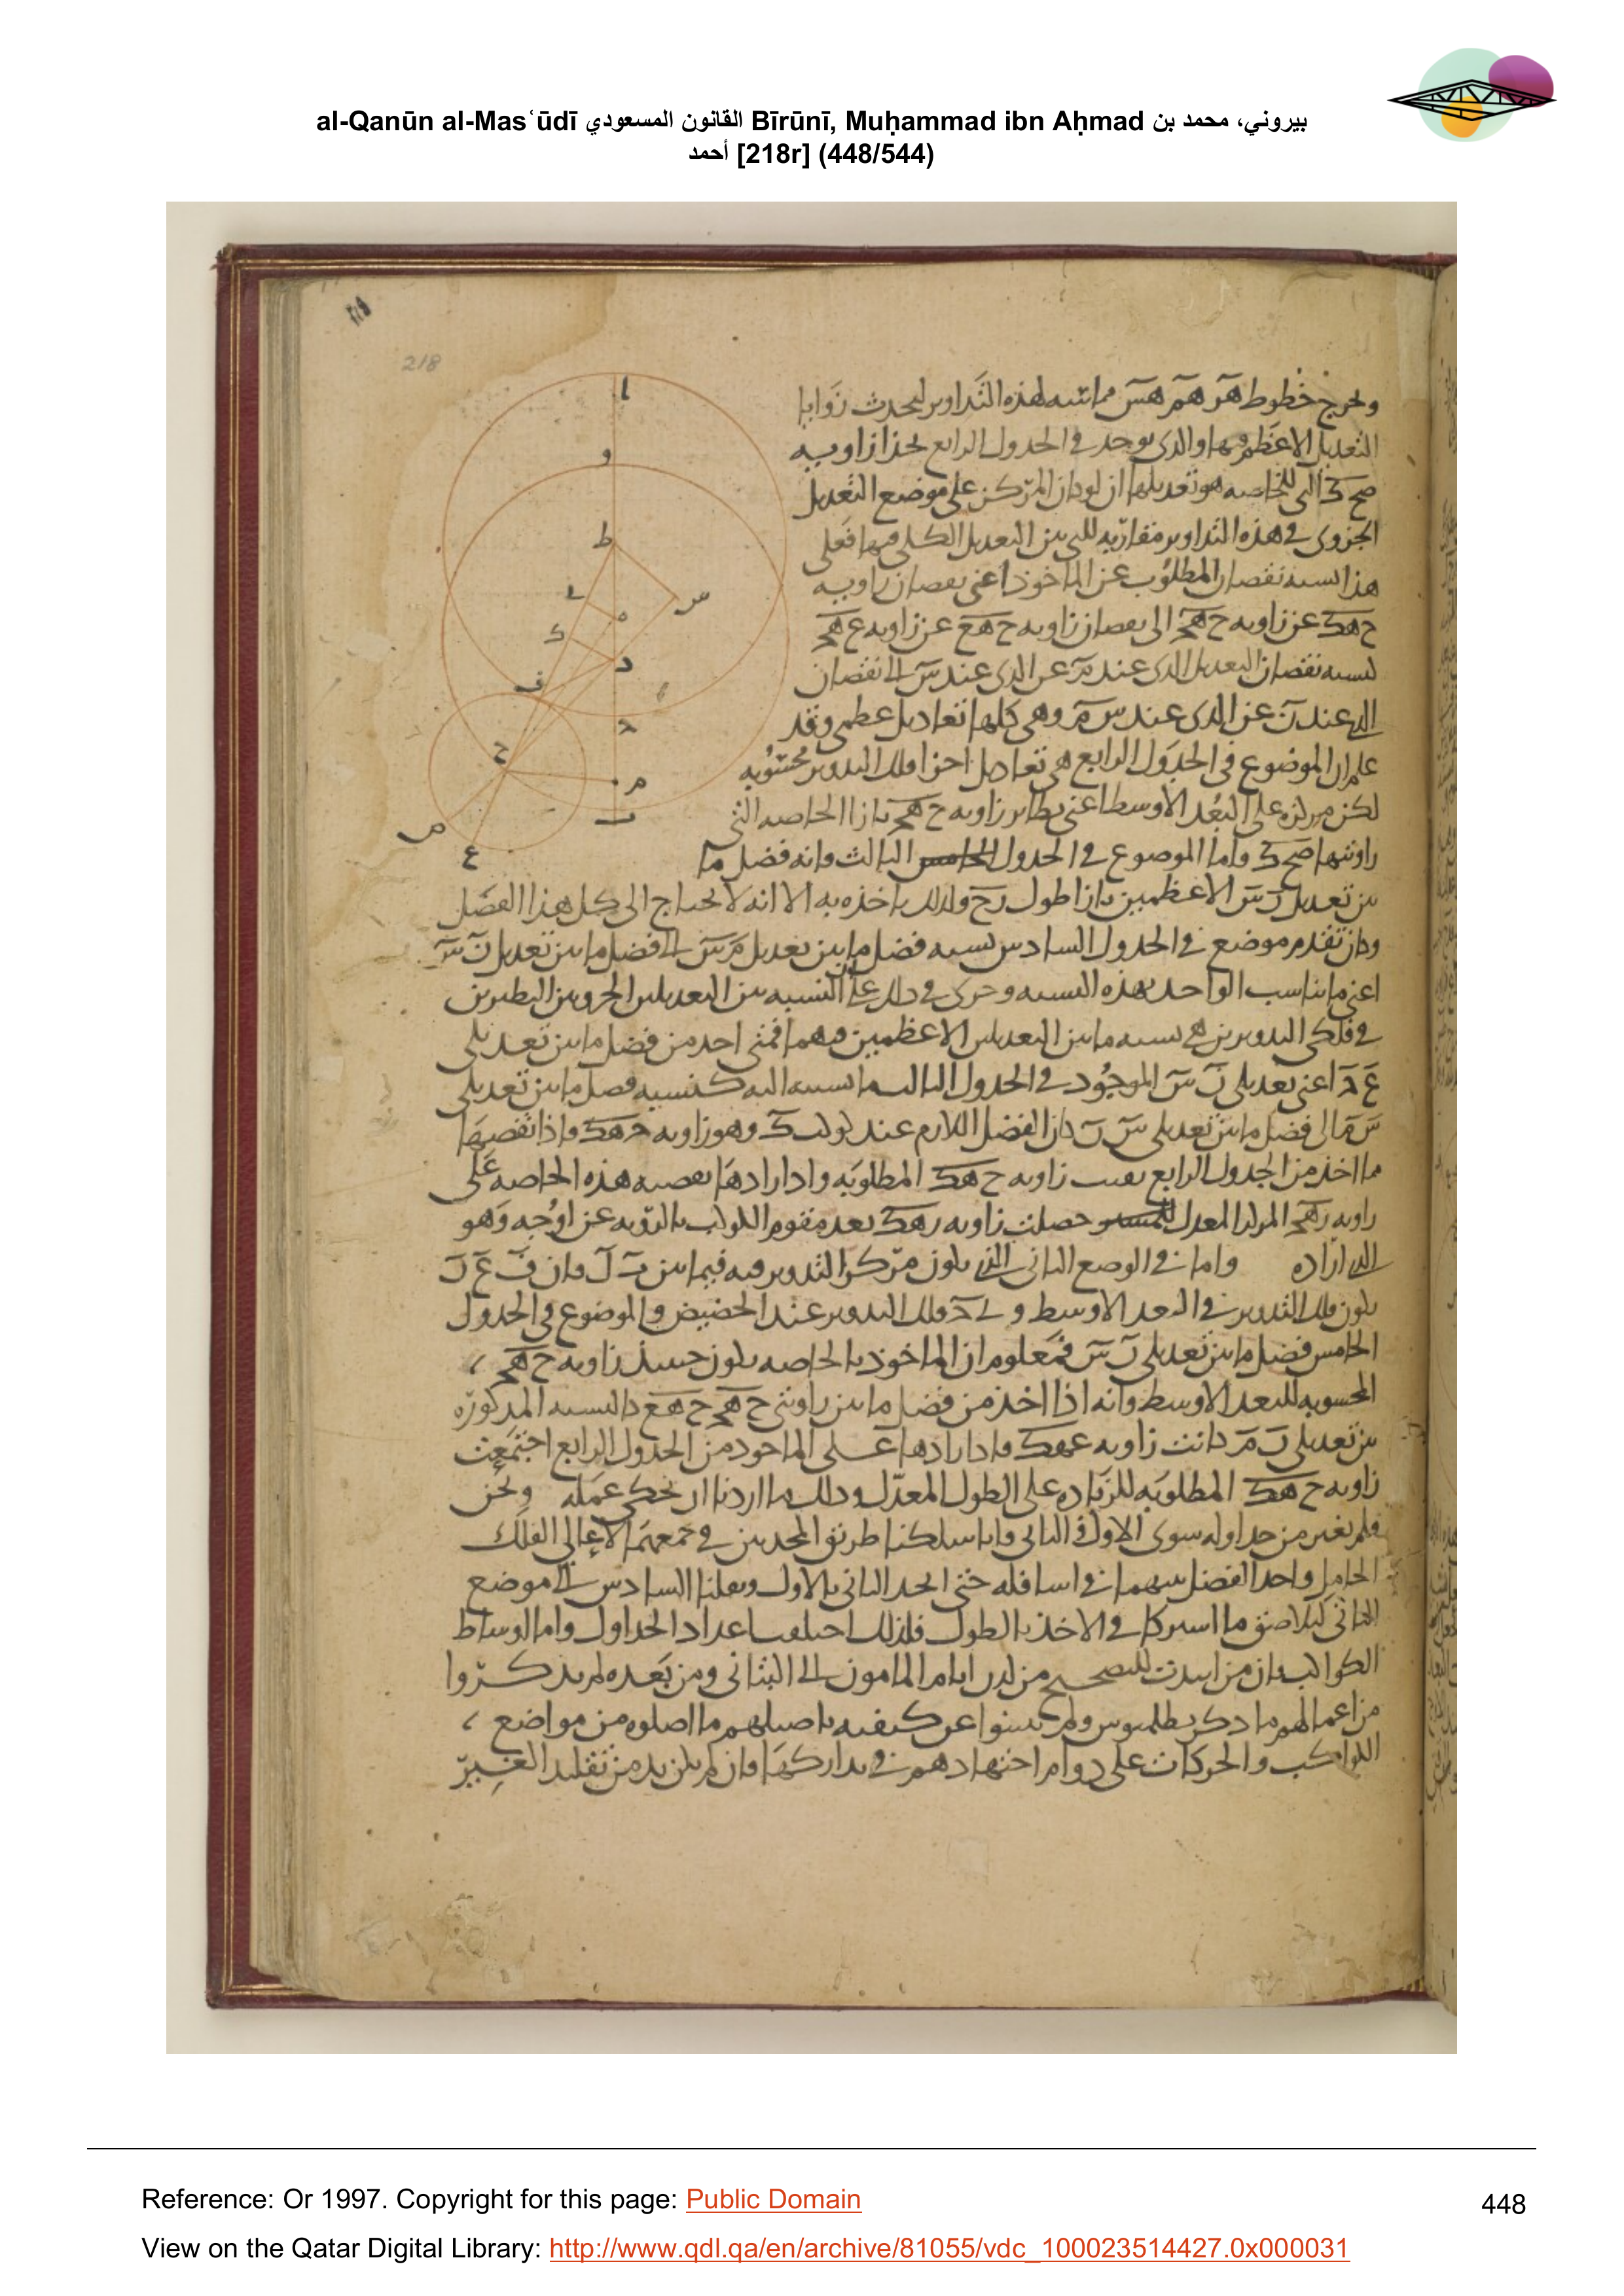 al-Qanūn al-Masʿūdī القانون المسعودي Bīrūnī, Muḥammad ibn Aḥmad بيروني، محمد بن
أحمد [218r] (448/544)
218
ا
و
ط
س
ل
ه
ك
د
ف
ح
ح
م
ص
ع
ب
خطوط هز هم هس مماسة لهذه التداوير لتحدث زوايا
التعديل الاعظم فيها والذي يوجد في الجدول الرابع
صح ك التي للخاصه هو تعديلها ان لو كان المركز على موضع التعديل
الجزوى في هذه التداوير مقاربه للتي بين التعديل الكلي فيها فعلى
هذا نسبه نقصان المطلوب عن الماخوذ اعنى نقصان زاويه
ح هك عن زاويه ح هـ الى نقصان زاويه ح هع عن زاويه
كنسبه نقصان التعديل الذي عند م عن الذي عند س الى نقصان
الذي عند ن عن الذي عند س م وهي كلها تعاديل عظمى وقد
علم ان الموضوع في الجدول الرابع هي تعاديل اجزا فلك التدوير محسوبه
لكن مركزه على البعد الاوسط اعنى نظاير زاويه بازا الخاصه التي
زاويتها صح ك واما الموضوع في الجدول الثالث فانه فضل ما
بين تعديل ن س الاعظمين بازا طول ولذلك ياخذه به الا انه لا يحتاج الى كل هذا الفضل
وكان تقدم موضع في الجدول السادس نسبه فضل ما بين تعديل م س الى فضل ما بين تعديل ن س
اعنى ما يناسب الواحد بهذه النسبه وجرى في ذلك على ان النسبه بين التعديلين الجزويين النظيرين
في فلكى التدويرين هي نسبه ما بين التعديلين الاعظمين فيهما فمتى اخذ من فضل ما بين تعديلى
اعنى تعديلى ن س الموجود في الجدول الثالث ما نسبته اليه كنسبه فضل ما بين تعديلى
س م الى فضل ما بين تعديلى س ن كان الفضل اللازم عند كوكب ك وهو زاويه هك واذا نقصها
مما اخذ من الجدول الرابع بقيت زاويه ح هك المطلوبه واذا زادها بقصبه هذه الخاصه على
زاويه المركز المعدل حصلت زاويه هك بعد مقوم الكوكب بالرويه عن اوجه وهو
الذي اراده واما في الوضع الثاني الذي يكون مركز التدوير فيه فيما بين
يكون فلك التدوير في البعد الاوسط وفلك التدوير عند الحضيض والموضوع في الجدول
الخامس فضل ما بين تعديلى ن س فمعلوم ان الماخوذ بالخاصه يكون حينئذ زاويه
المحسوبه للبعد الاوسط وانه اذا اخذ من فضل ما بين زاويتى ح هع كالنسبه المذكوره
بين تعديلى ن م كانت زاويه عهك فاذا زادها على الماخوذ من الجدول الرابع اجتمعت
زاويه ح هك المطلوبه للزياده على الطول المعدل وذلك ما اردنا ان نحكي عمله ونحن
فلم نغير من جداوله سوى الاول والثاني فانا سلكنا طريق المحدثين في جمعهما لاعالى الفلك
الحامل واخذ الفضل بينهما في اسافله حتى اتحد الثاني بالاول ونقلنا السادس الى موضع
الثاني لتلاصق ما اشتركا في الاخذ بالطول فلذلك اختلف اعداد الجداول واما اوساط
الكواكب فان من ايدت للتصحيح من لدن ايام المامون الى البتاني ومن بعده لم يذكروا
من اعمالهم ما ذكر بطلميوس ولم يبينوا عن كيفيه تاصيلهم ما اصلوه من مواضع
الكواكب والحركات على دوام اجتهادهم في تداركها وان لم يكن بد من تقليد الغير
Reference: Or 1997. Copyright for this page: Public Domain
448
View on the Qatar Digital Library: http://www.qdl.qa/en/archive/81055/vdc_100023514427.0x000031